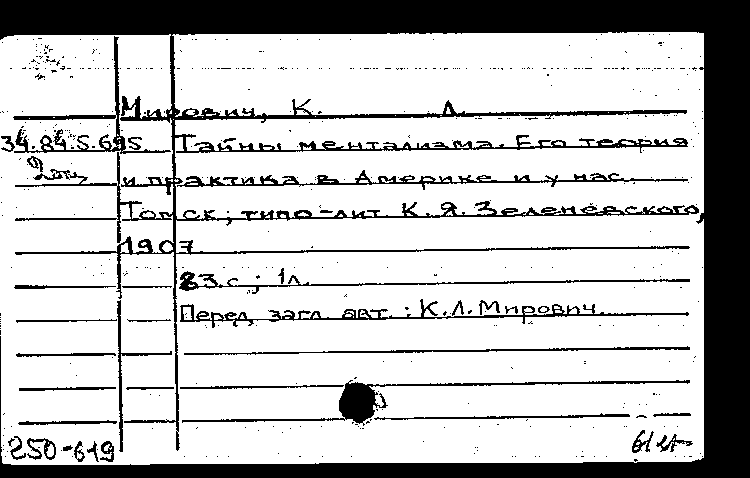 Мирович, К. Л.
34.84.5.695. Тайны ментализма. Его теория
2 экз и практика в Америке и у нас.
Томск; типо-лит. К. Я. Зеленевского,
1907
83 с.; 1л.
Перед загл. авт.: К.Л.Мирович.
250-619